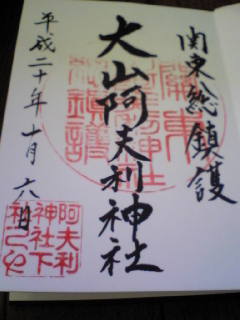 関東総鎮護
大山阿夫利神社
平成二十年十月六日
阿夫利
神社下